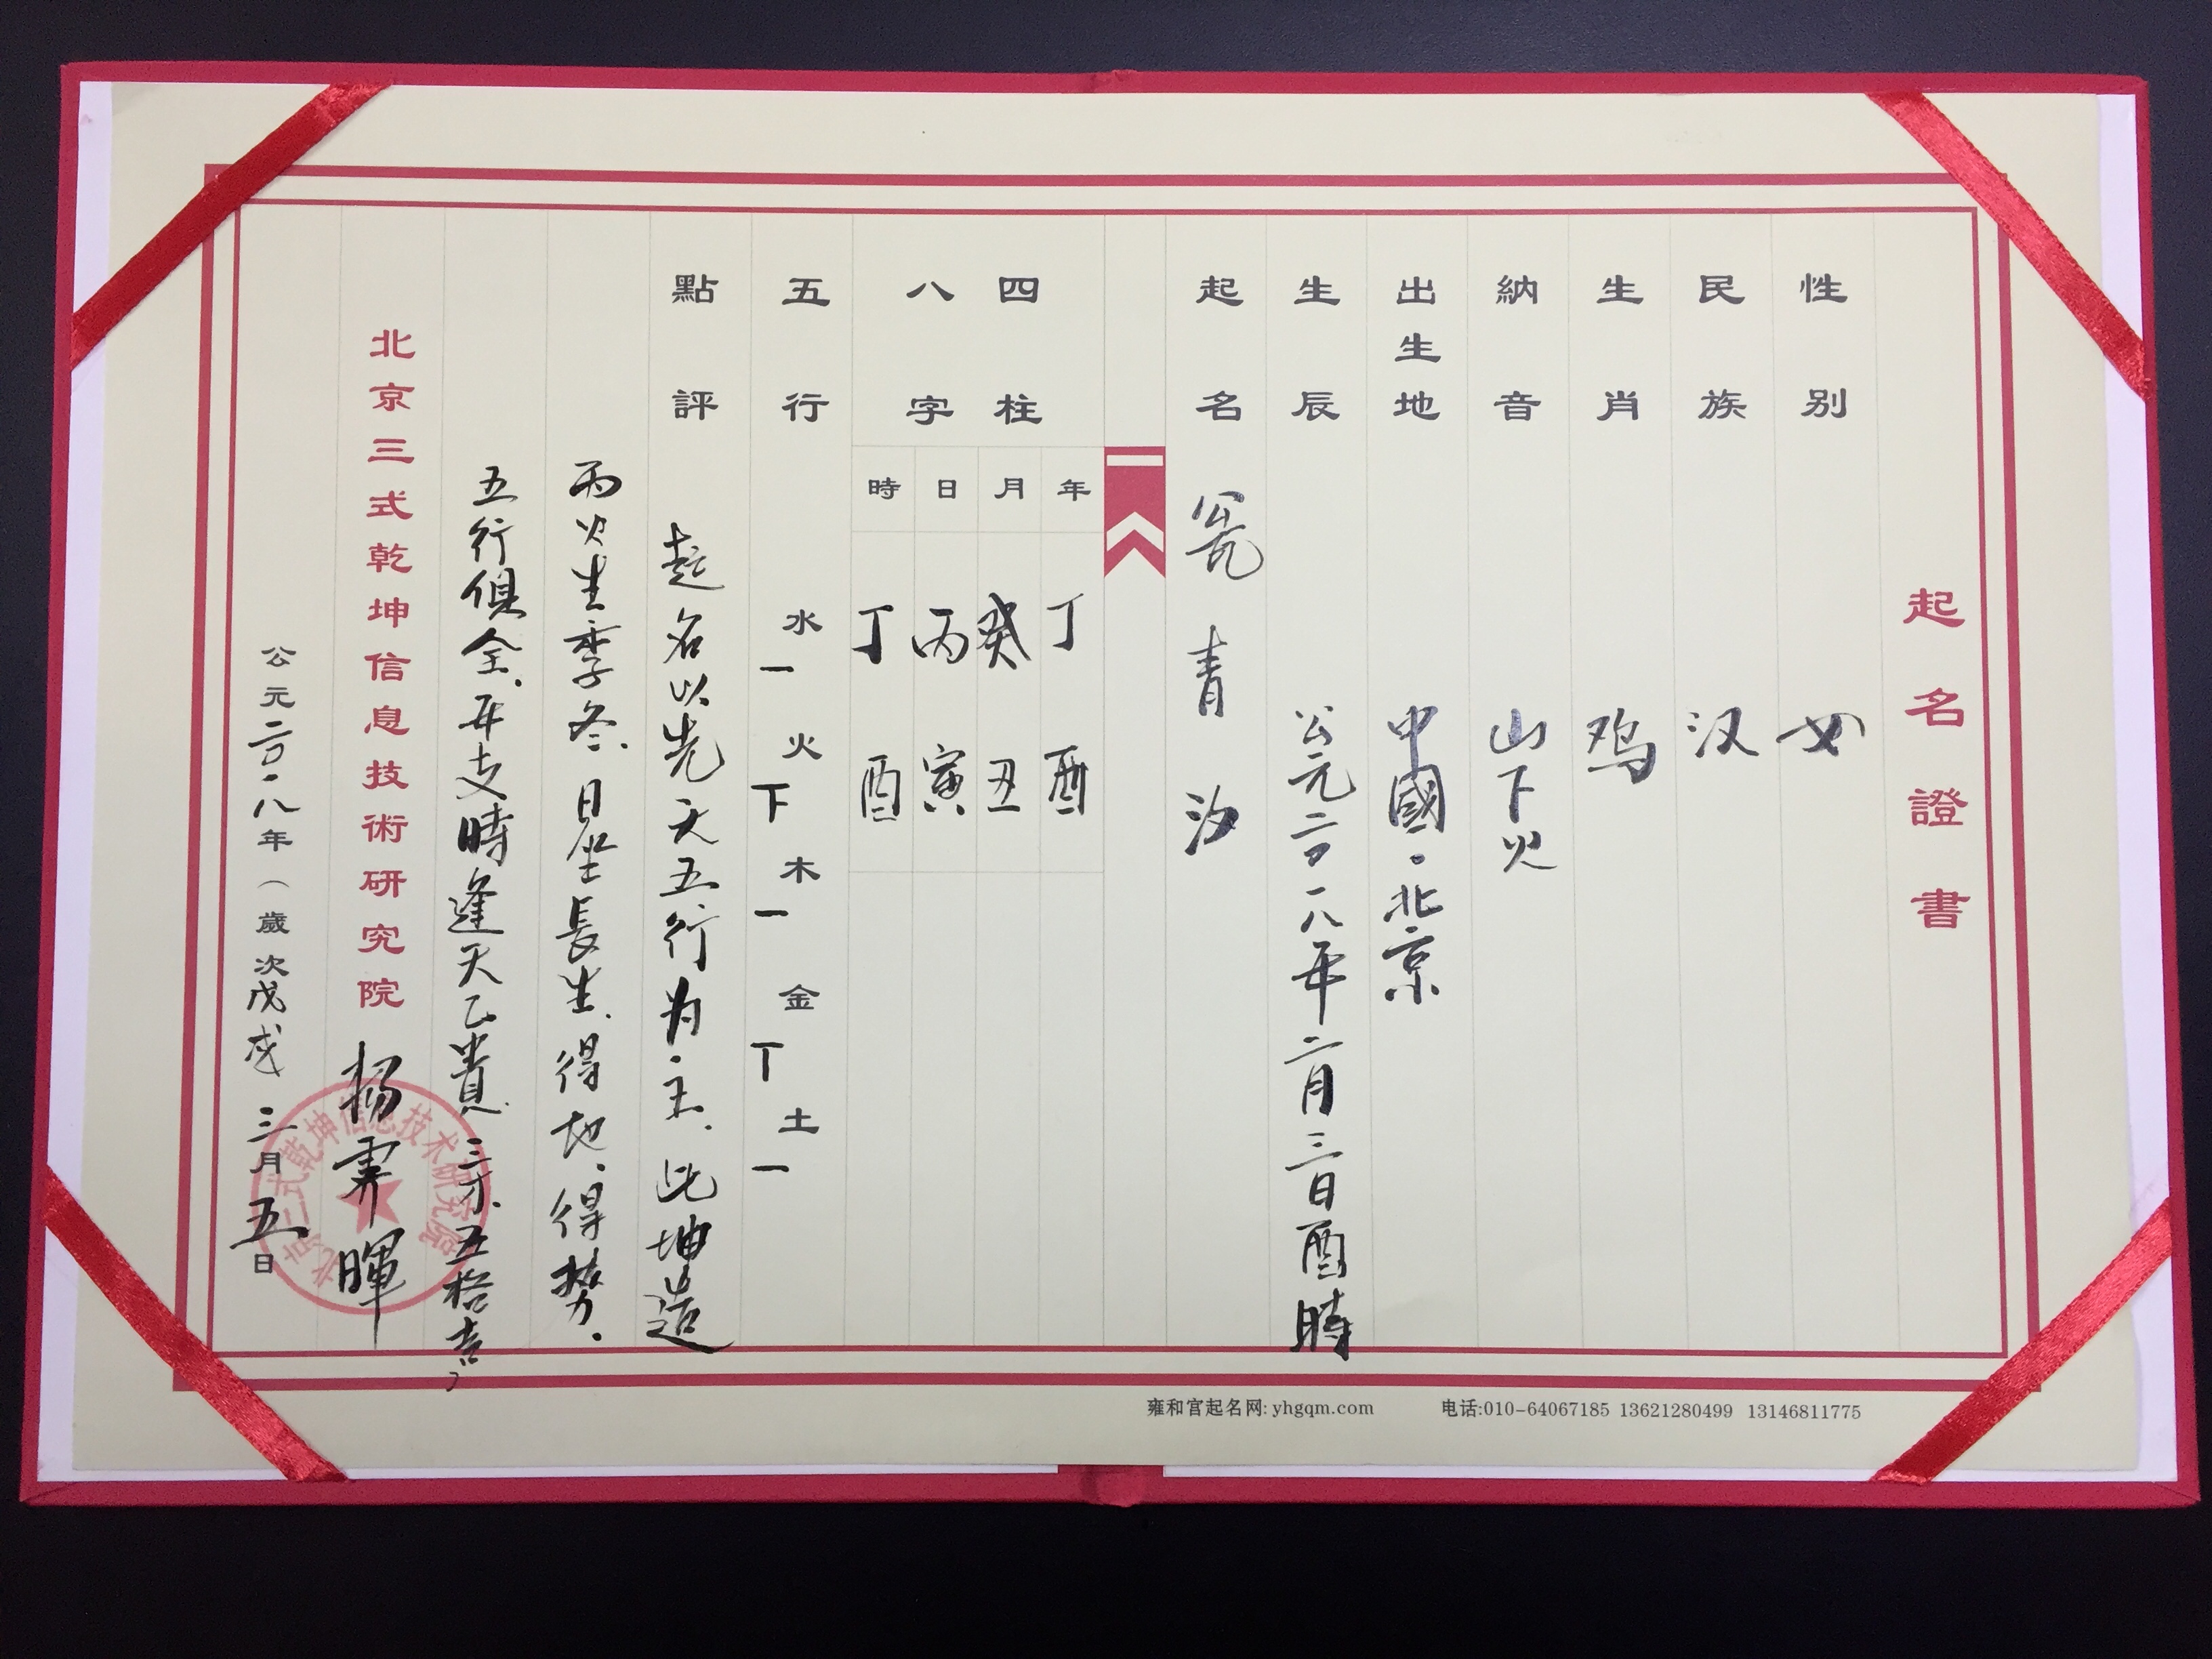 起名證書
性别 女
民族 汉
生肖 鸡
納音 山下火
出生地 中國·北京
生辰 公元二〇一八年二月三日酉時
起名 瓮青汐
四柱
八字
年 丁酉
月 癸丑
日 丙寅
時 丁酉
五行 水一 火下 木一 金丅 土一
點評 起名以先天五行为主、此坤造
丙火生季冬、日坐長生、得地、得勢.
五行俱全、年支時逢天乙貴、三才、五格吉
北京三式乾坤信息技術研究院 杨霁暉
公元二〇一八年（歲次戊戌 三月五日
北京三式乾坤信息技术研究院
雍和宫起名网: yhgqm.com 电话:010-64067185 13621280499 13146811775